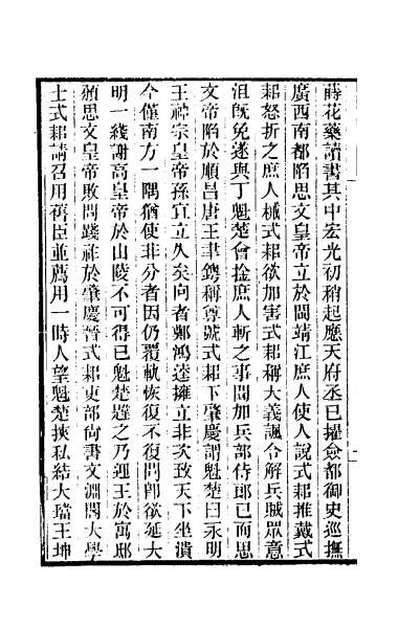 蒔花藥讀書其中宏光初稍起應天府丞已擢僉都御史巡撫
廣西南都陷思文皇帝立於閩靖江庶人使人說式耜推戴式
耜怒折之庶人械式耜欲加害式耜稱大義諷令解兵城眾意
沮旣免遂與丁魁楚會擒庶人斬之事聞加兵部侍郎已而思
文帝陷於順昌唐王聿鐭稱尊號式耜下肇慶謂魁楚曰永明
王神宗皇帝孫宜立久矣向者鄭鴻逵擁立非次致天下坐潰
今僅南方一隅猶使非分者因仍覆軌恢復不復問卽欲延大
明一綫謝高皇帝於山陵不可得已魁楚韙之乃迎王於寓邸
頒思文皇帝敗問踐祚於肇慶晉式耜吏部尙書文淵閣大學
士式耜請召用舊臣並薦用一時人望魁楚挾私結大璫王坤